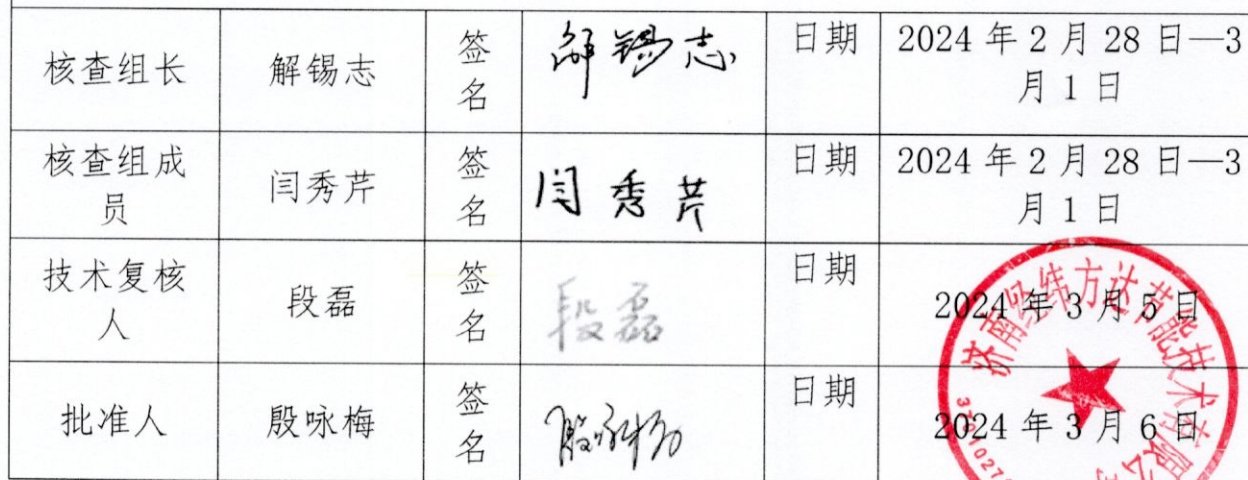 核查组长 解锡志 签名 解锡志 日期 2024 年 2 月 28 日—3
月 1 日
核查组成员 闫秀芹 签名 闫秀芹 日期 2024 年 2 月 28 日—3
月 1 日
技术复核人 段磊 签名 段磊 日期 2024 年 3 月 5 日
批准人 殷咏梅 签名 殷咏梅 日期 2024 年 3 月 6 日
济南经纬方达节能技术有限公司